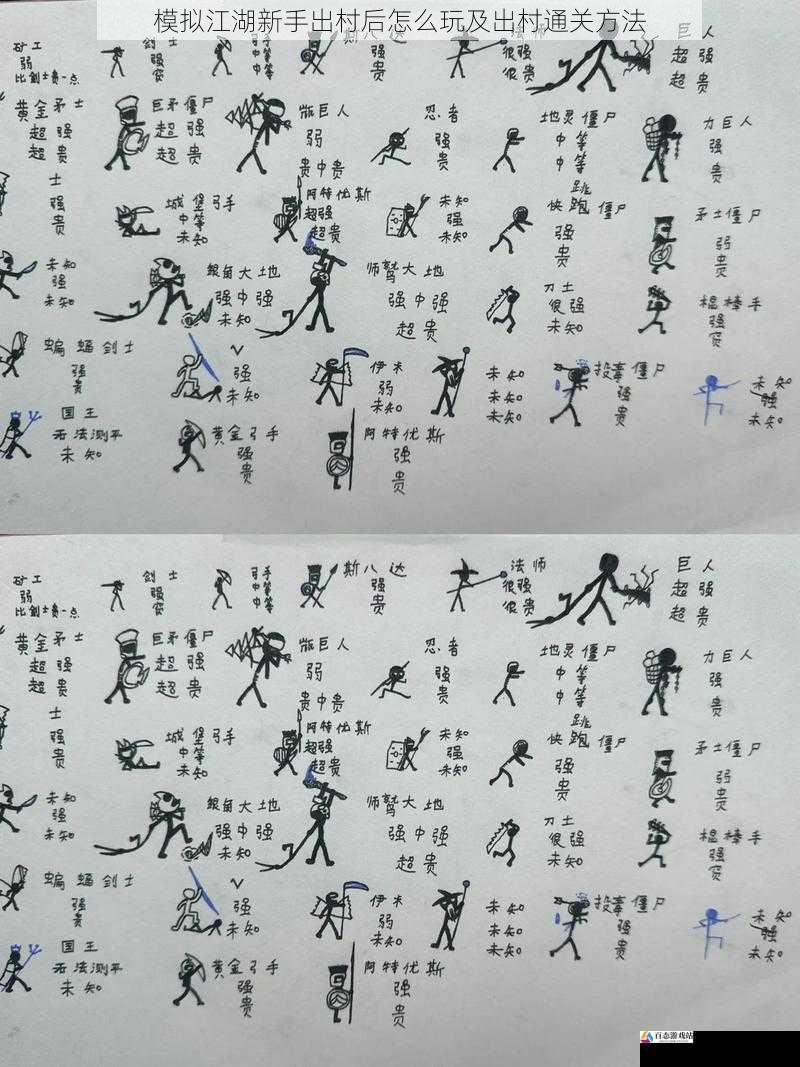 模拟江湖新手出村后怎么玩及出村通关方法
矿工
弱
比剑士贵一点
剑士
强
弓手
中等
中等
斯八达
强
贵
法师
很强
很贵
巨人
超强
超贵
黄金矛士
超强
超贵
巨矛僵尸
超强
超贵
巨人
弱
贵中贵
忍者
强
贵
地灵僵尸
中等
中等
力巨人
强
贵
士
强
贵
城堡弓手
中等
未知
阿特优斯
超强
超贵
未知
强
未知
跳
快跑僵尸
强
贵
矛士僵尸
弱
贵
未知
强
未知
银角大地
强中强
未知
师鹫大地
强中强
超贵
刀士
很强
未知
棍棒手
强
蝙蝠剑士
强
贵
V
强
未知
伊木
弱
未知
未知
未知
未知
投毒僵尸
强
贵
未知
强
未知
国王
无法测平
未知
黄金弓手
强
贵
阿特优斯
强
贵
矿工
弱
比剑士贵一点
剑士
强
弓手
中等
中等
斯八达
强
贵
法师
很强
很贵
巨人
超强
超贵
黄金矛士
超强
超贵
巨矛僵尸
超强
超贵
巨人
弱
贵中贵
忍者
强
贵
地灵僵尸
中等
中等
力巨人
强
贵
士
强
贵
城堡弓手
中等
未知
阿特优斯
超强
超贵
未知
强
未知
跳
快跑僵尸
强
贵
矛士僵尸
弱
贵
未知
强
未知
银角大地
强中强
未知
师鹫大地
强中强
超贵
刀士
很强
未知
棍棒手
强
蝙蝠剑士
强
贵
V
强
未知
伊木
弱
未知
未知
未知
未知
投毒僵尸
强
贵
未知
强
未知
国王
无法测平
未知
黄金弓手
强
贵
阿特优斯
强
贵
百态游戏站